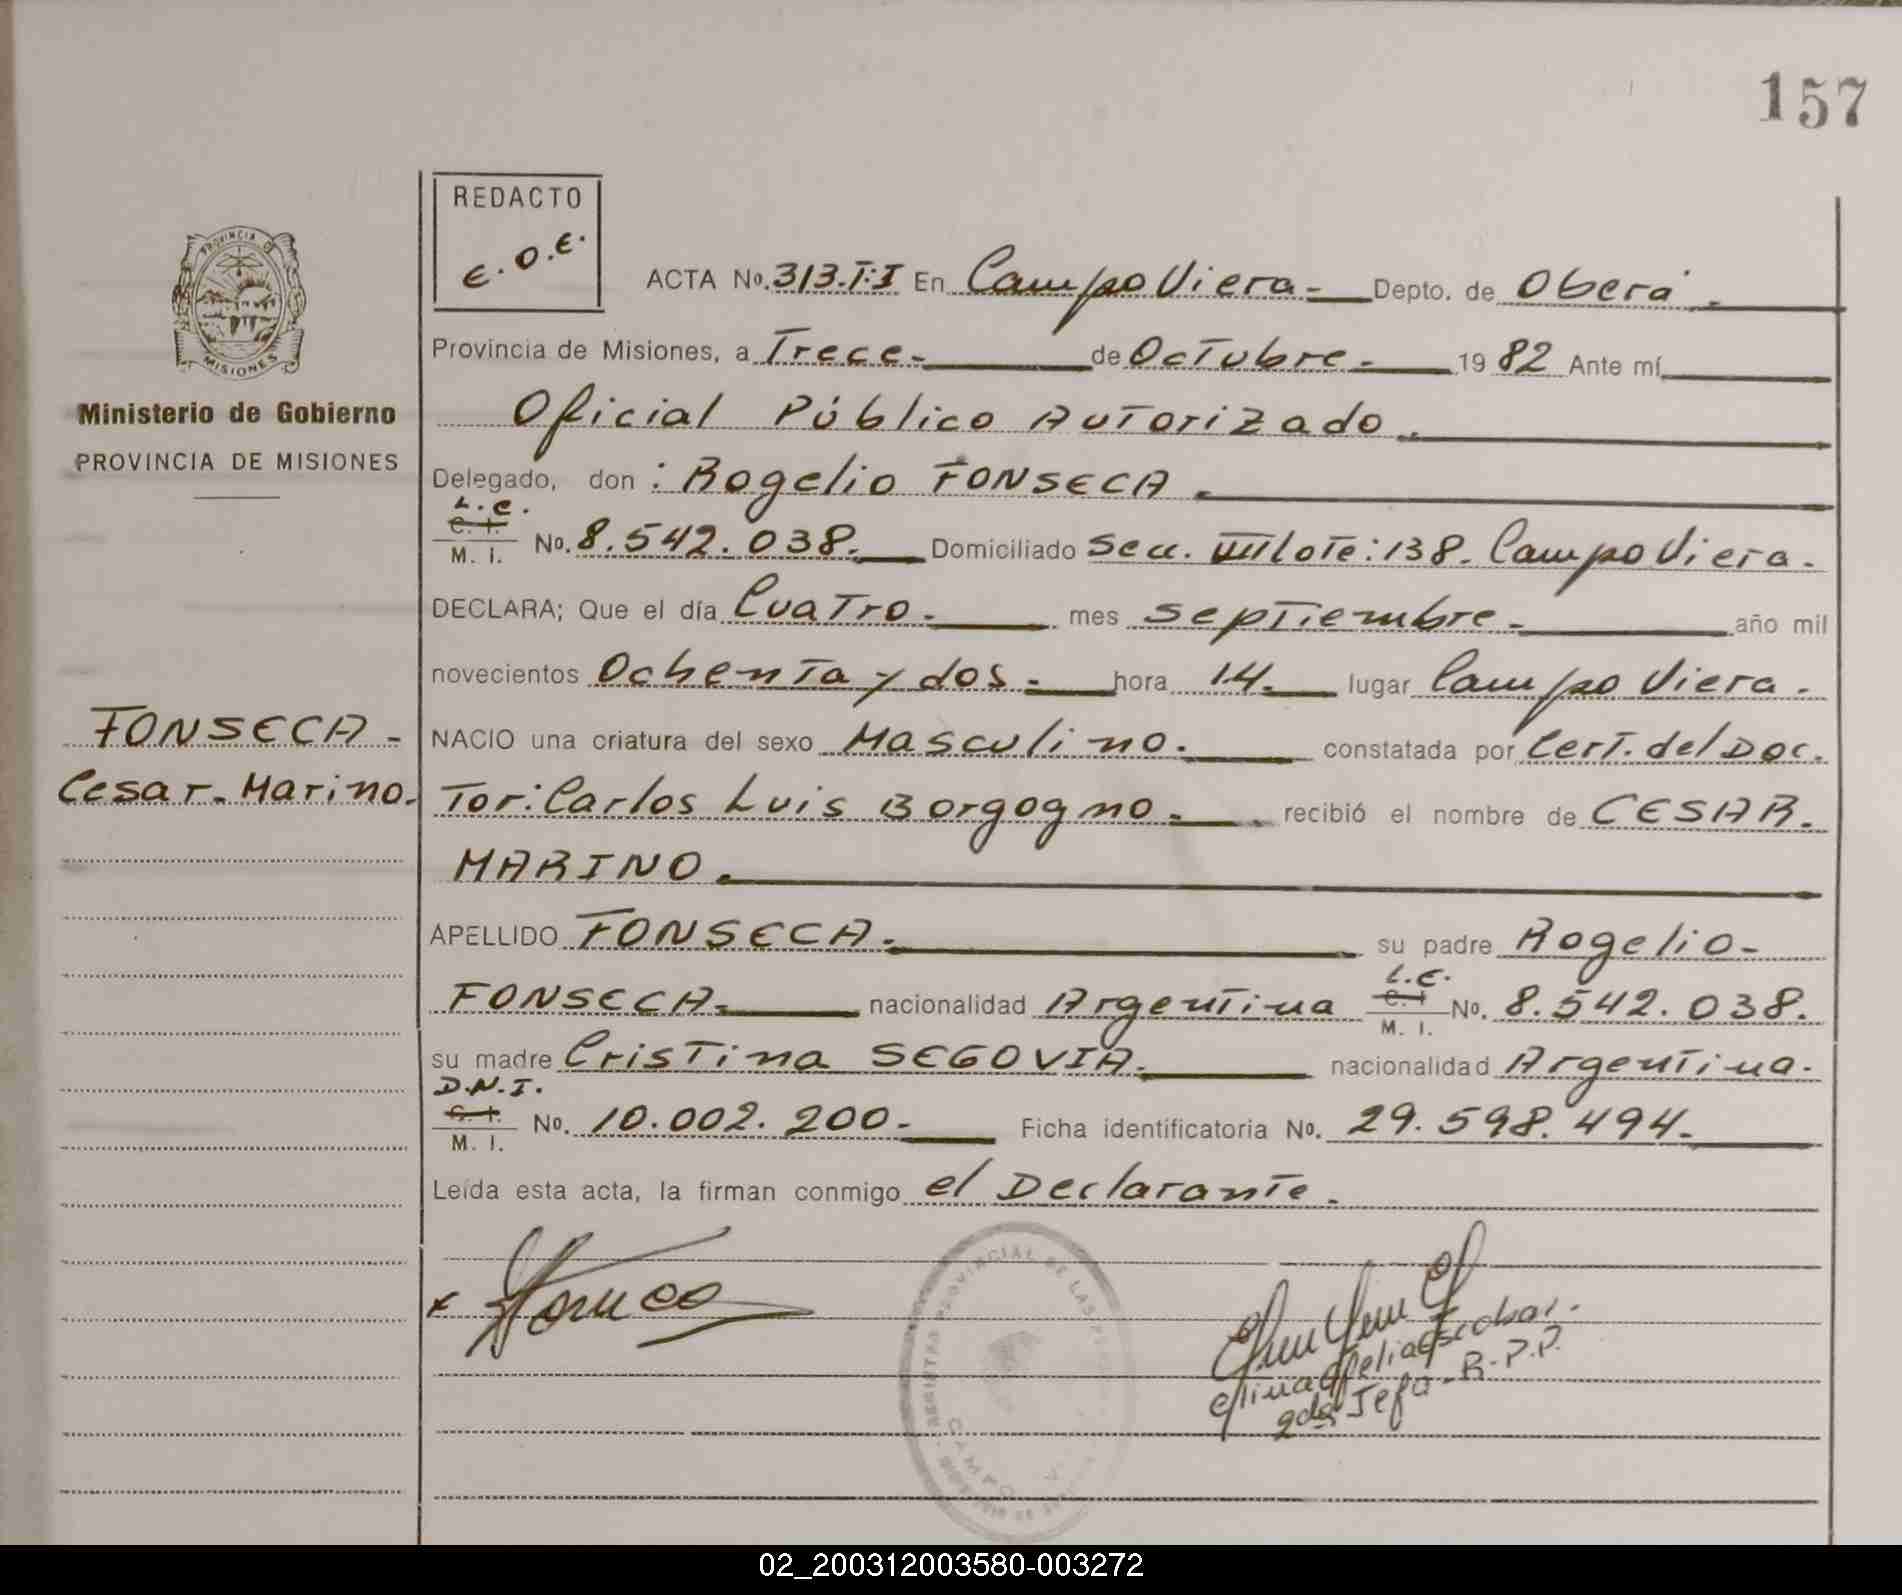 157
REDACTO
E.O.E.
PROVINCIA D
MISIONES
Ministerio de Gobierno
PROVINCIA DE MISIONES
FONSECA -
Cesar. Marino.
ACTA No. 313.T:I En Campo Viera - Depto. de Oberá.
Provincia de Misiones, a Trece - de Octubre - 1982 Ante mí
Oficial Público Autorizado.
Delegado, don : Rogelio FONSECA.
L.E.
C. I.
M. I. No. 8.542.038. Domiciliado Secc. lote: 138. Campo Viera.
DECLARA; Que el día Cuatro. mes septiembre. año mil
novecientos Ochenta y dos. hora 14. lugar Campo Viera.
NACIO una criatura del sexo Masculino. constatada por Cert. del Doc.
tor: Carlos Luis Borgogno. recibió el nombre de CESAR.
MARINO.
APELLIDO FONSECA. su padre Rogelio-
L.E.
FONSECA. nacionalidad Argentina C. I. M. I. No. 8.542.038.
su madre Cristina SEGOVIA. nacionalidad Argentina.
D.N.I.
C. I.
M. I. No. 10.002.200. Ficha identificatoria No. 29.598.494.
Leída esta acta, la firman conmigo el Declarante.
REGISTRO PROVINCIAL DE LAS
CAMPO V
Elina Ofelia Escobar.
Jefa - R.P.P.
02_200312003580-003272